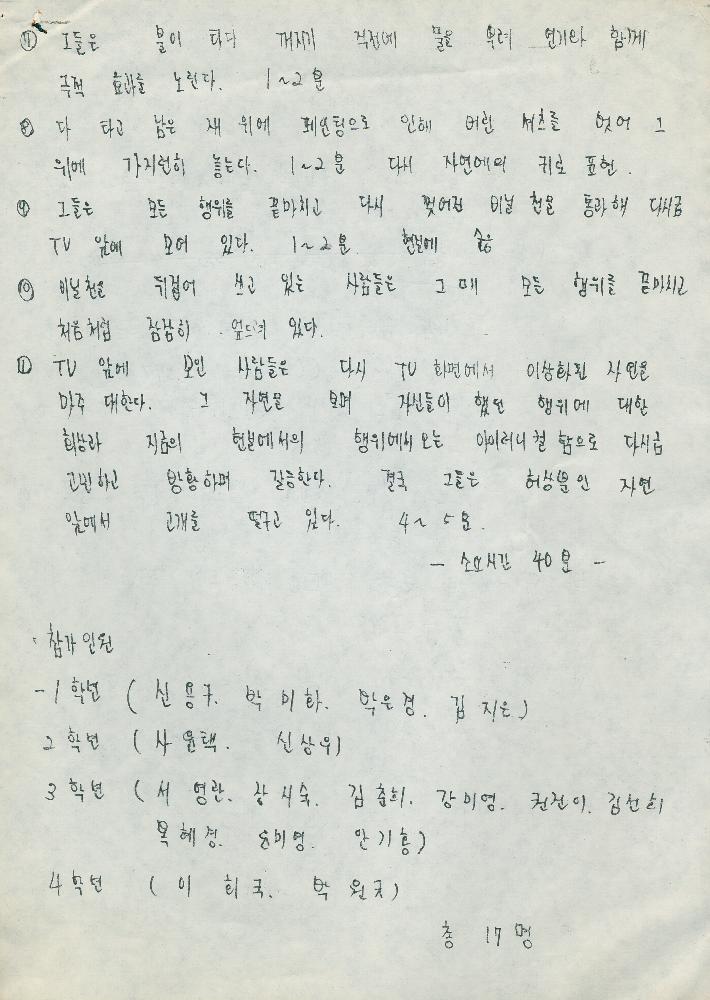 ⑦ 그들은 불이 타다 꺼지기 직전에 물을 뿌려 연기와 함께
극적 효과를 노린다. 1~2분
⑧ 다 타고 남은 재 위에 페인팅으로 인해 버린 셔츠를 벗어 그
위에 가지런히 놓는다. 1~2분 다시 자연에의 귀로 표현.
⑨ 그들은 모든 행위를 끝마치고 다시 찢어진 비닐 천을 통과해 다시금
TV 앞에 모여 있다. 1~2분 현실에
⑩ 비닐천을 뒤집어 쓰고 있는 사람들은 그 때 모든 행위를 끝마치고
처음처럼 잠잠히 엎드려 있다.
⑪ TV 앞에 모인 사람들은 다시 TV 화면에서 이상화된 자연을
마주 대한다. 그 자연을 보며 자신들이 했던 행위에 대한
회상과 지금의 현실에서의 행위에서 오는 아이러니컬 함으로 다시금
고민하고 방황하며 갈등한다. 결국 그들은 허상뿐인 자연
앞에서 고개를 떨구고 있다. 4~5분.
- 소요시간 40분 -
· 참가인원
- 1학년 (신용구. 박미화. 박은경. 김지은)
2학년 (사윤택. 신상우)
3학년 (서영란. 장시숙. 김춘희. 강미영. 권전이. 김선희
목혜경. 안기홍)
4학년 (이희국. 박원규)
총 17명